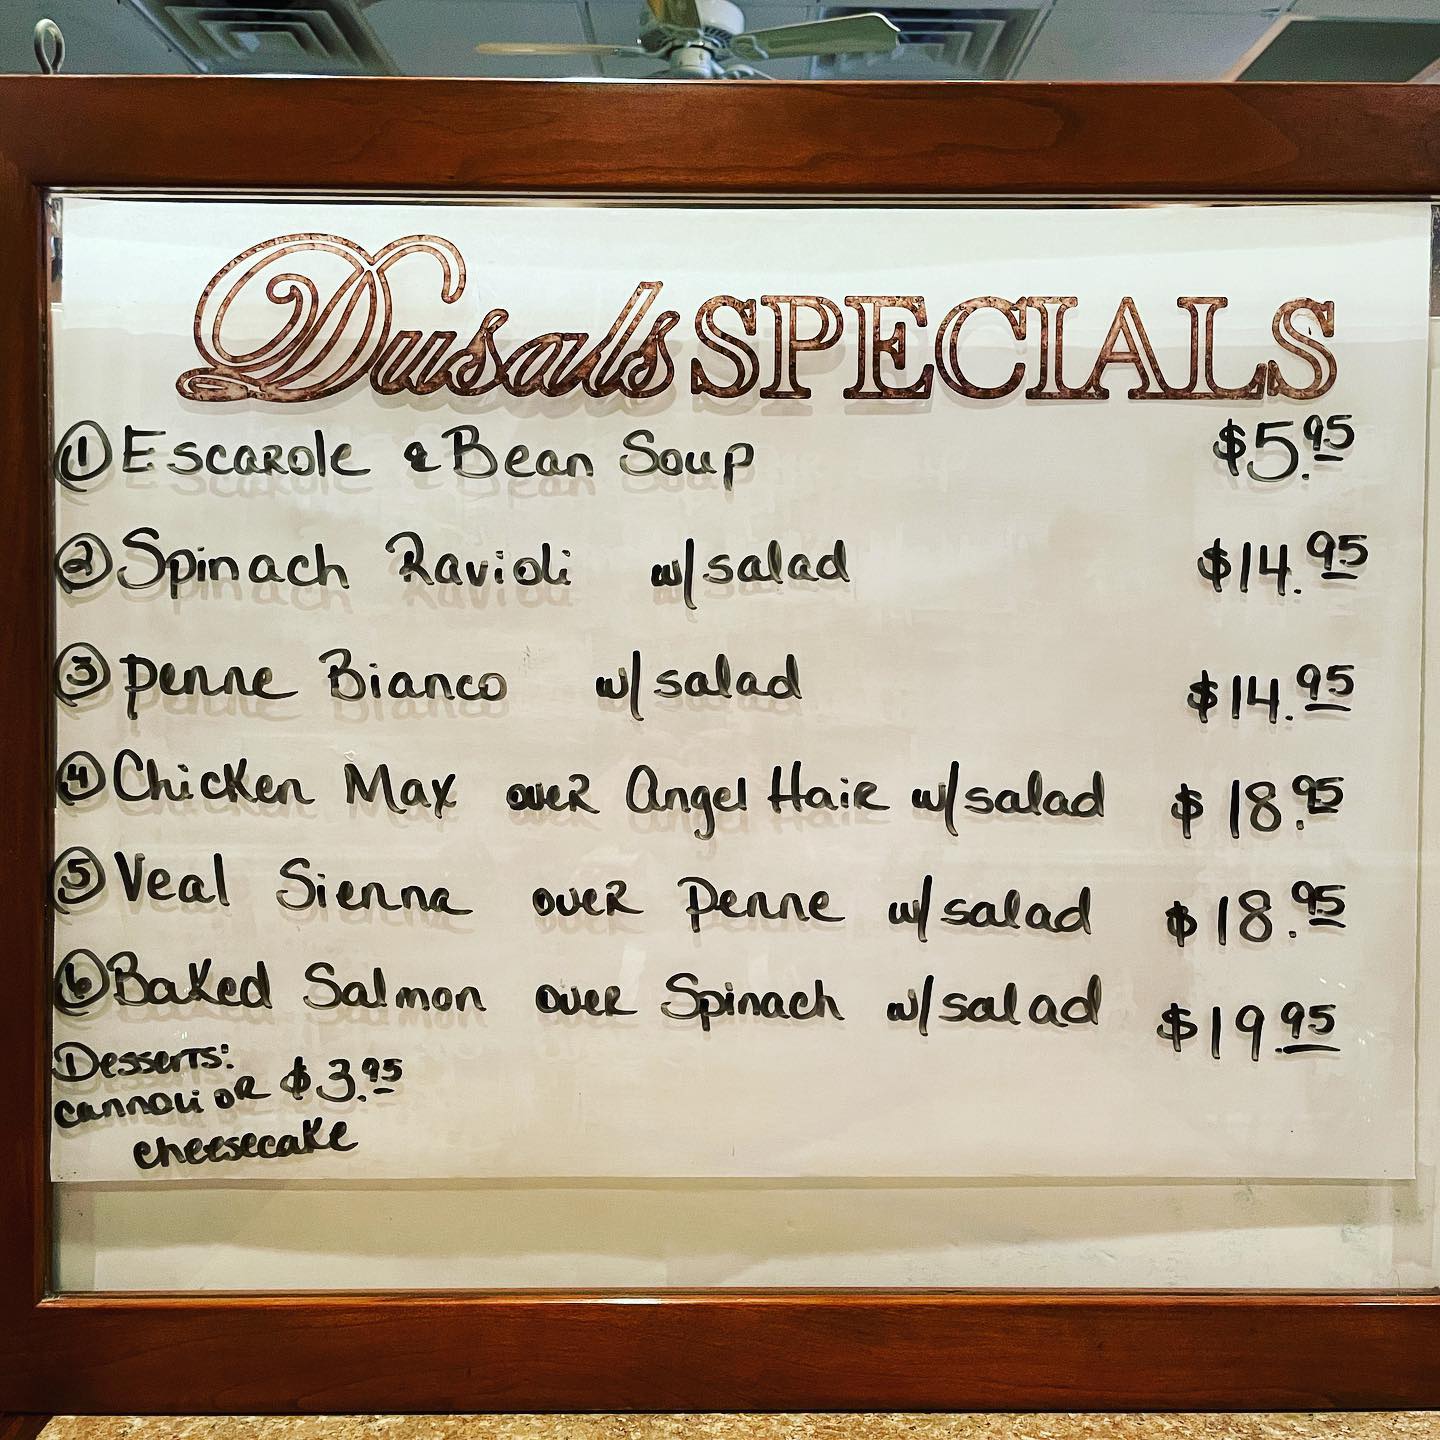 Dusals SPECIALS
① Escarole & Bean Soup $5.95
② Spinach Ravioli w/salad $14.95
③ Penne Bianco w/salad $14.95
④ Chicken Max over Angel Hair w/salad $18.95
⑤ Veal Sienna over Penne w/salad $18.95
⑥ Baked Salmon over Spinach w/salad $19.95
Desserts:
cannoli or $3.95
cheesecake